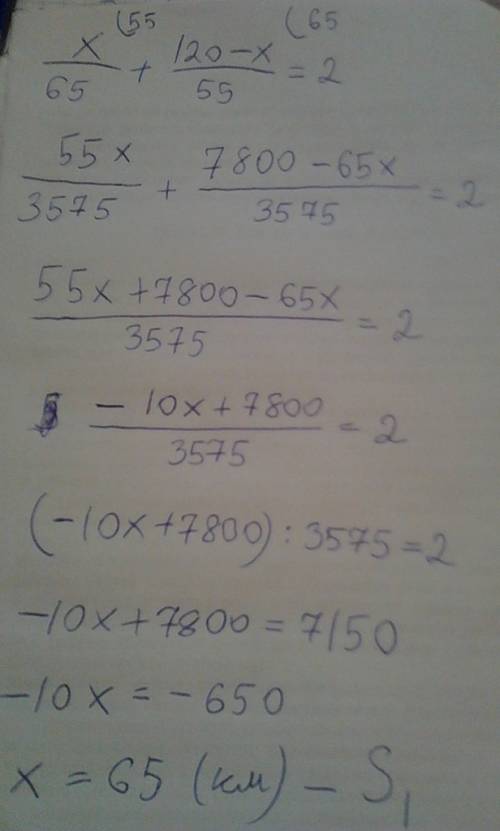 x/65 (55 + (120-x)/55 (65 = 2
55x/3575 + (7800-65x)/3575 = 2
(55x+7800-65x)/3575 = 2
(-10x+7800)/3575 = 2
(-10x+7800):3575=2
-10x+7800=7150
-10x=-650
x=65 (км) - S₁